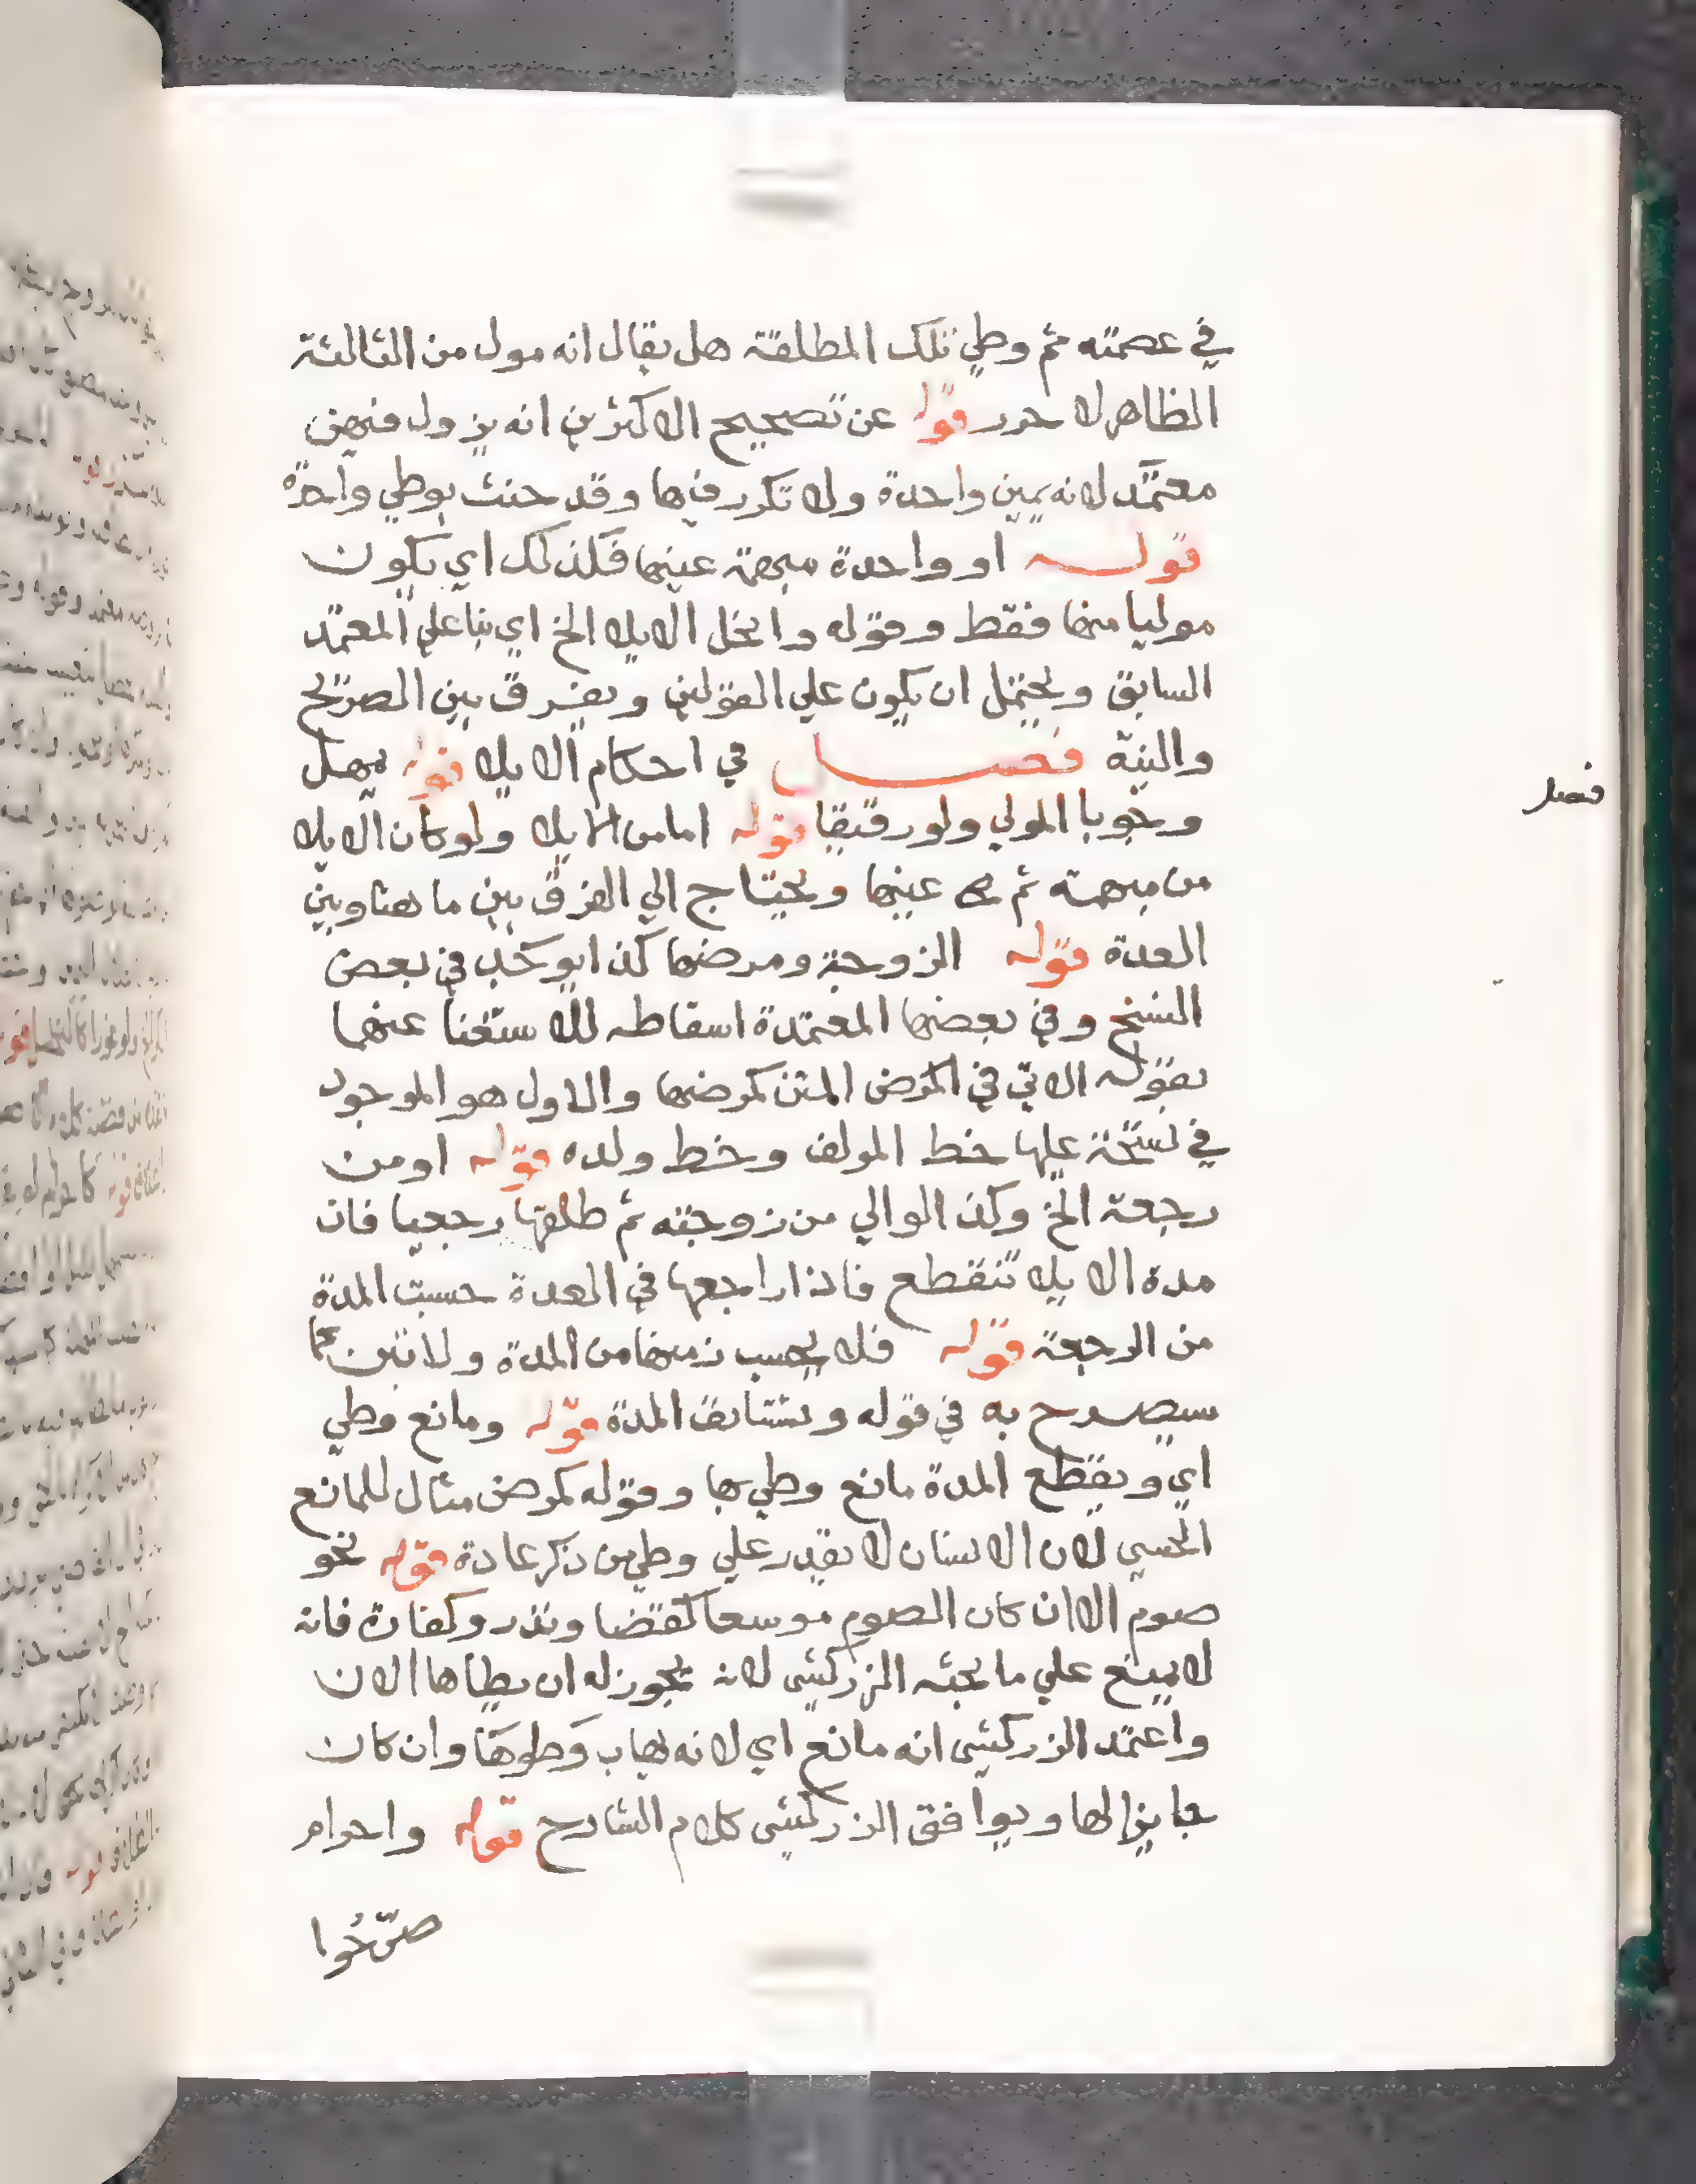 في عصمته ثم وطي تلك المطلقة هل يقال انه مول من الثالثة
الظاهر لا حرر قوله عن تصحيح الاكثرين انه يزول فيهن
معتمد لانه يمين واحدة ولا تكرر فيها وقد حنث بوطي واحدة
قوله او واحدة مبهمة عينها فكذلك اي يكون
موليا منها فقط وقوله وانحل الايلا الخ اي بنا علي المعتمد
السابق ويحتمل ان يكون علي القولين ويفرق بين الصريح
والنية فصل في احكام الايلا قوله يمهل
فصل
وجوبا المولي ولو رقيقا قوله اما من الايلا ولو كان الايلا
من مبهمة ثم عينها ويحتاج الي الفرق بين ما هنا وبين
العدة قوله الزوجة ومرضها كذا يوجد في بعض
النسخ وفي بعضها المعتمدة اسقاطه للاستغنا عنهما
بقوله الاتي في المتن كمرضها والاول هو الموجود
في نسخة عليها خط المولف وخط ولده قوله او من
رجعة الخ وكذا لو الي من زوجته ثم طلقها رجعيا فان
مدة الايلا تنقطع فاذا راجعها في العدة حسبت المدة
من الرجعة قوله فلا يحسب زمنها من المدة ولا تبن كما
سيصرح به في قوله وتستانف المدة قوله ومانع وطي
اي ويقطع المدة مانع وطي بها وقوله كمرض مثال للمانع
الحسي لان الانسان لا يقدر علي وطي من ذكر عادة قوله نحو
صوم الا ان كان الصوم موسعا كقضا ونذر وكفارة فانه
لا يمنع علي ما بحثه الزركشي لانه يجوز له ان يطاها الان
واعتمد الزركشي انه مانع اي لانه يهاب وطوها وان كان
جايزا لها ويوافق الزركشي كلام الشارح قوله واحرام
صرحوا